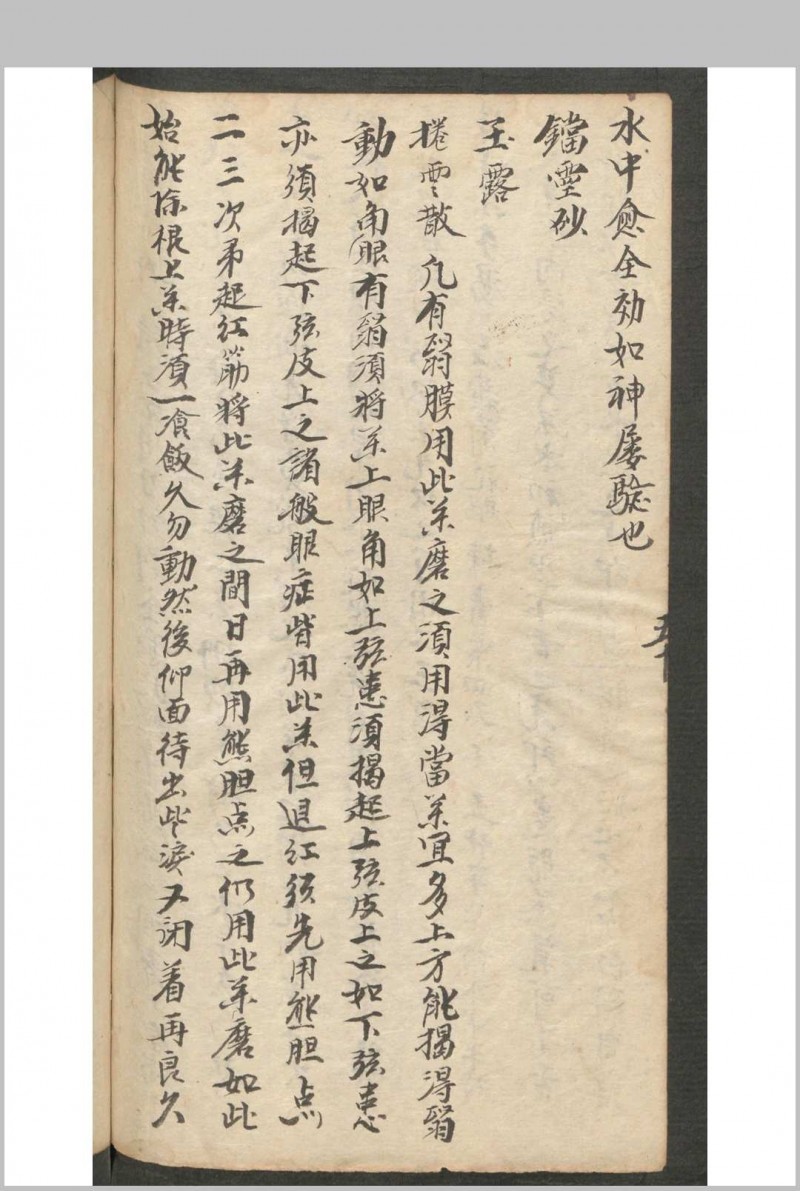 水中愈全効如神屡驗也
鐺靈砂
玉露
捲雲散 凢有翳膜用此药磨之須用得當药宜多上方能揭得翳
動如角眼有翳須将药上眼角如上弦患須揭起上弦皮上之如下弦患
亦須揭起下弦皮上之諸般眼症皆用此药但退红須先用熊胆点
二三次弔起红筋將此药磨之間日再用熊胆点之仍用此药磨如此
始能除根上药時須一飡飯久勿動然後仰面待出些淚又闭着再良久